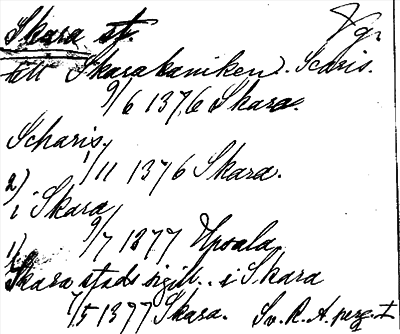 Skara st. Vg.
Ett Skarakaniken. Scaris.
9/6 1376 Skara.
Scharis,
1/11 1376 Skara.
2)
i Skara,
9/7 1377 Upsala
1)
Skara stads sigill. i Skara
7/5 1377 Skara. Sv. R. A. perg.